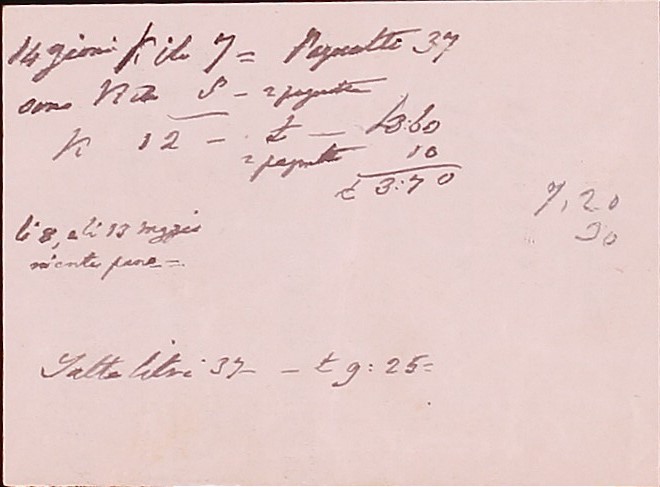 14 giorni Kilo 7 = Pagnotte 37
sono Kilo 5 - 2 pagnotte
K 12 - £ - 3:60
2 pagnotte 10
£ 3:70
7,20
30
li 8, e li 13 maggio
niente pane =
Latte litri 37 - £ 9:25 =